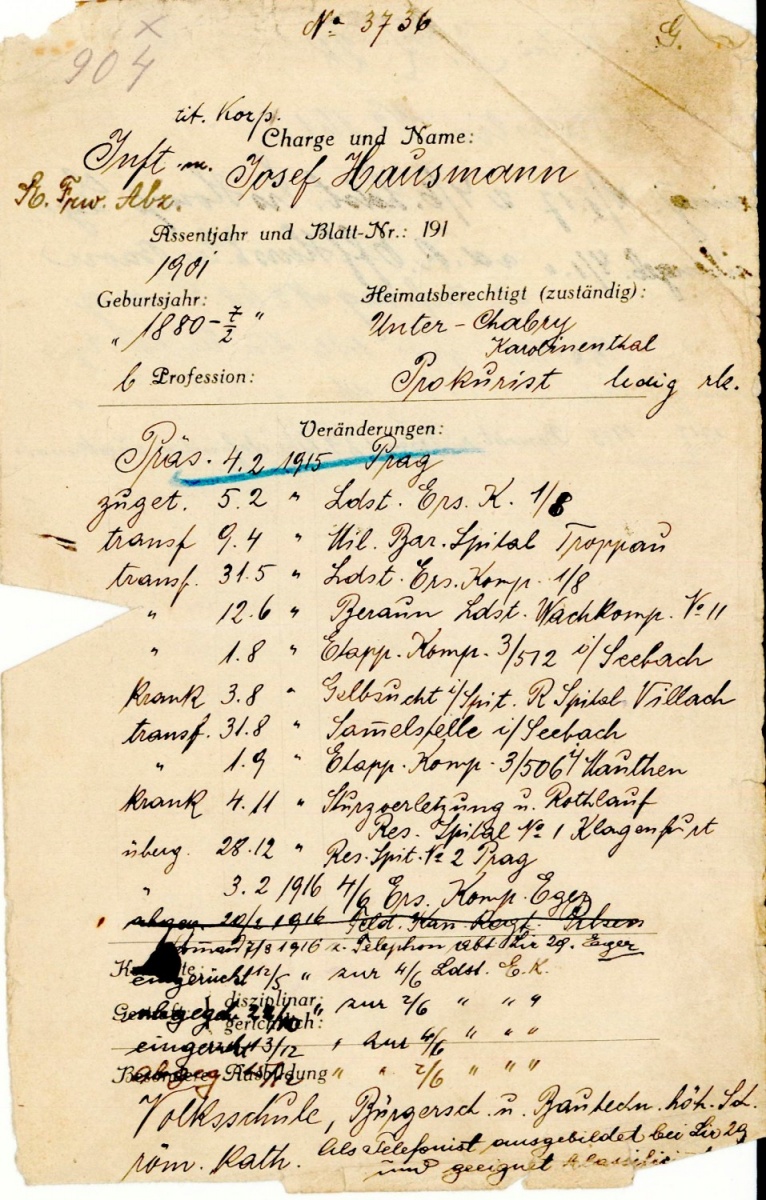 Nº 3736
G.
904
tit. Korp.
Charge und Name:
Inft. Josef Hausmann
Frw. Abz.
Assentjahr und Blatt-Nr.: 191
1901
Geburtsjahr: Heimatsberechtigt (zuständig):
" 1880-7/2 " Unter-Chabry
Karolinenthal
b Profession: Prokurist ledig rk.
Veränderungen:
Präs. 4.2 1915 Prag
zuget. 5.2 " Ldst. Ers. K. 1/8
transf 9.4 " Mil. Bar. Spital Troppau
transf. 31.5 " Ldst. Ers. Komp. 1/8
" 12.6 " Beraun Ldst. Wachkomp. Nº 11
" 1.8 " Etapp. Komp. 3/512 i/Seebach
krank 3.8 " Gelbsucht i/Spit. R Spital Villach
transf. 31.8 " Sam̄elstelle i/Seebach
" 1.9 " Etapp. Komp. 3/506 i/Mauthen
krank 4.11 " Sturzverletzung u. Rothlauf
Res. Spital Nº 1 Klagenfurt
überg. 28.12 " Res. Spit. Nº 2 Prag
" 3.2 1916 4/6 Ers. Komp. Eger
abgeg. 20/2 1916 Feld. Kan. Regt. Pilsen
7/3 1916 z. Telephon abt Lir 29. Eger
eingerückt 12/5 " zur 4/6 Ldst. E.K.
disziplinar:
zur 2/6 " " "
gerichtlich:
eingerückt 13/12 " zur 4/6 " " "
Besondere Ausbildung
" " 2/6 " " "
Volksschule, Bürgersch. u. Bautechn. höh. Sch.
röm. kath. Als Telefonist ausgebildet bei Lir 29
und geeignet